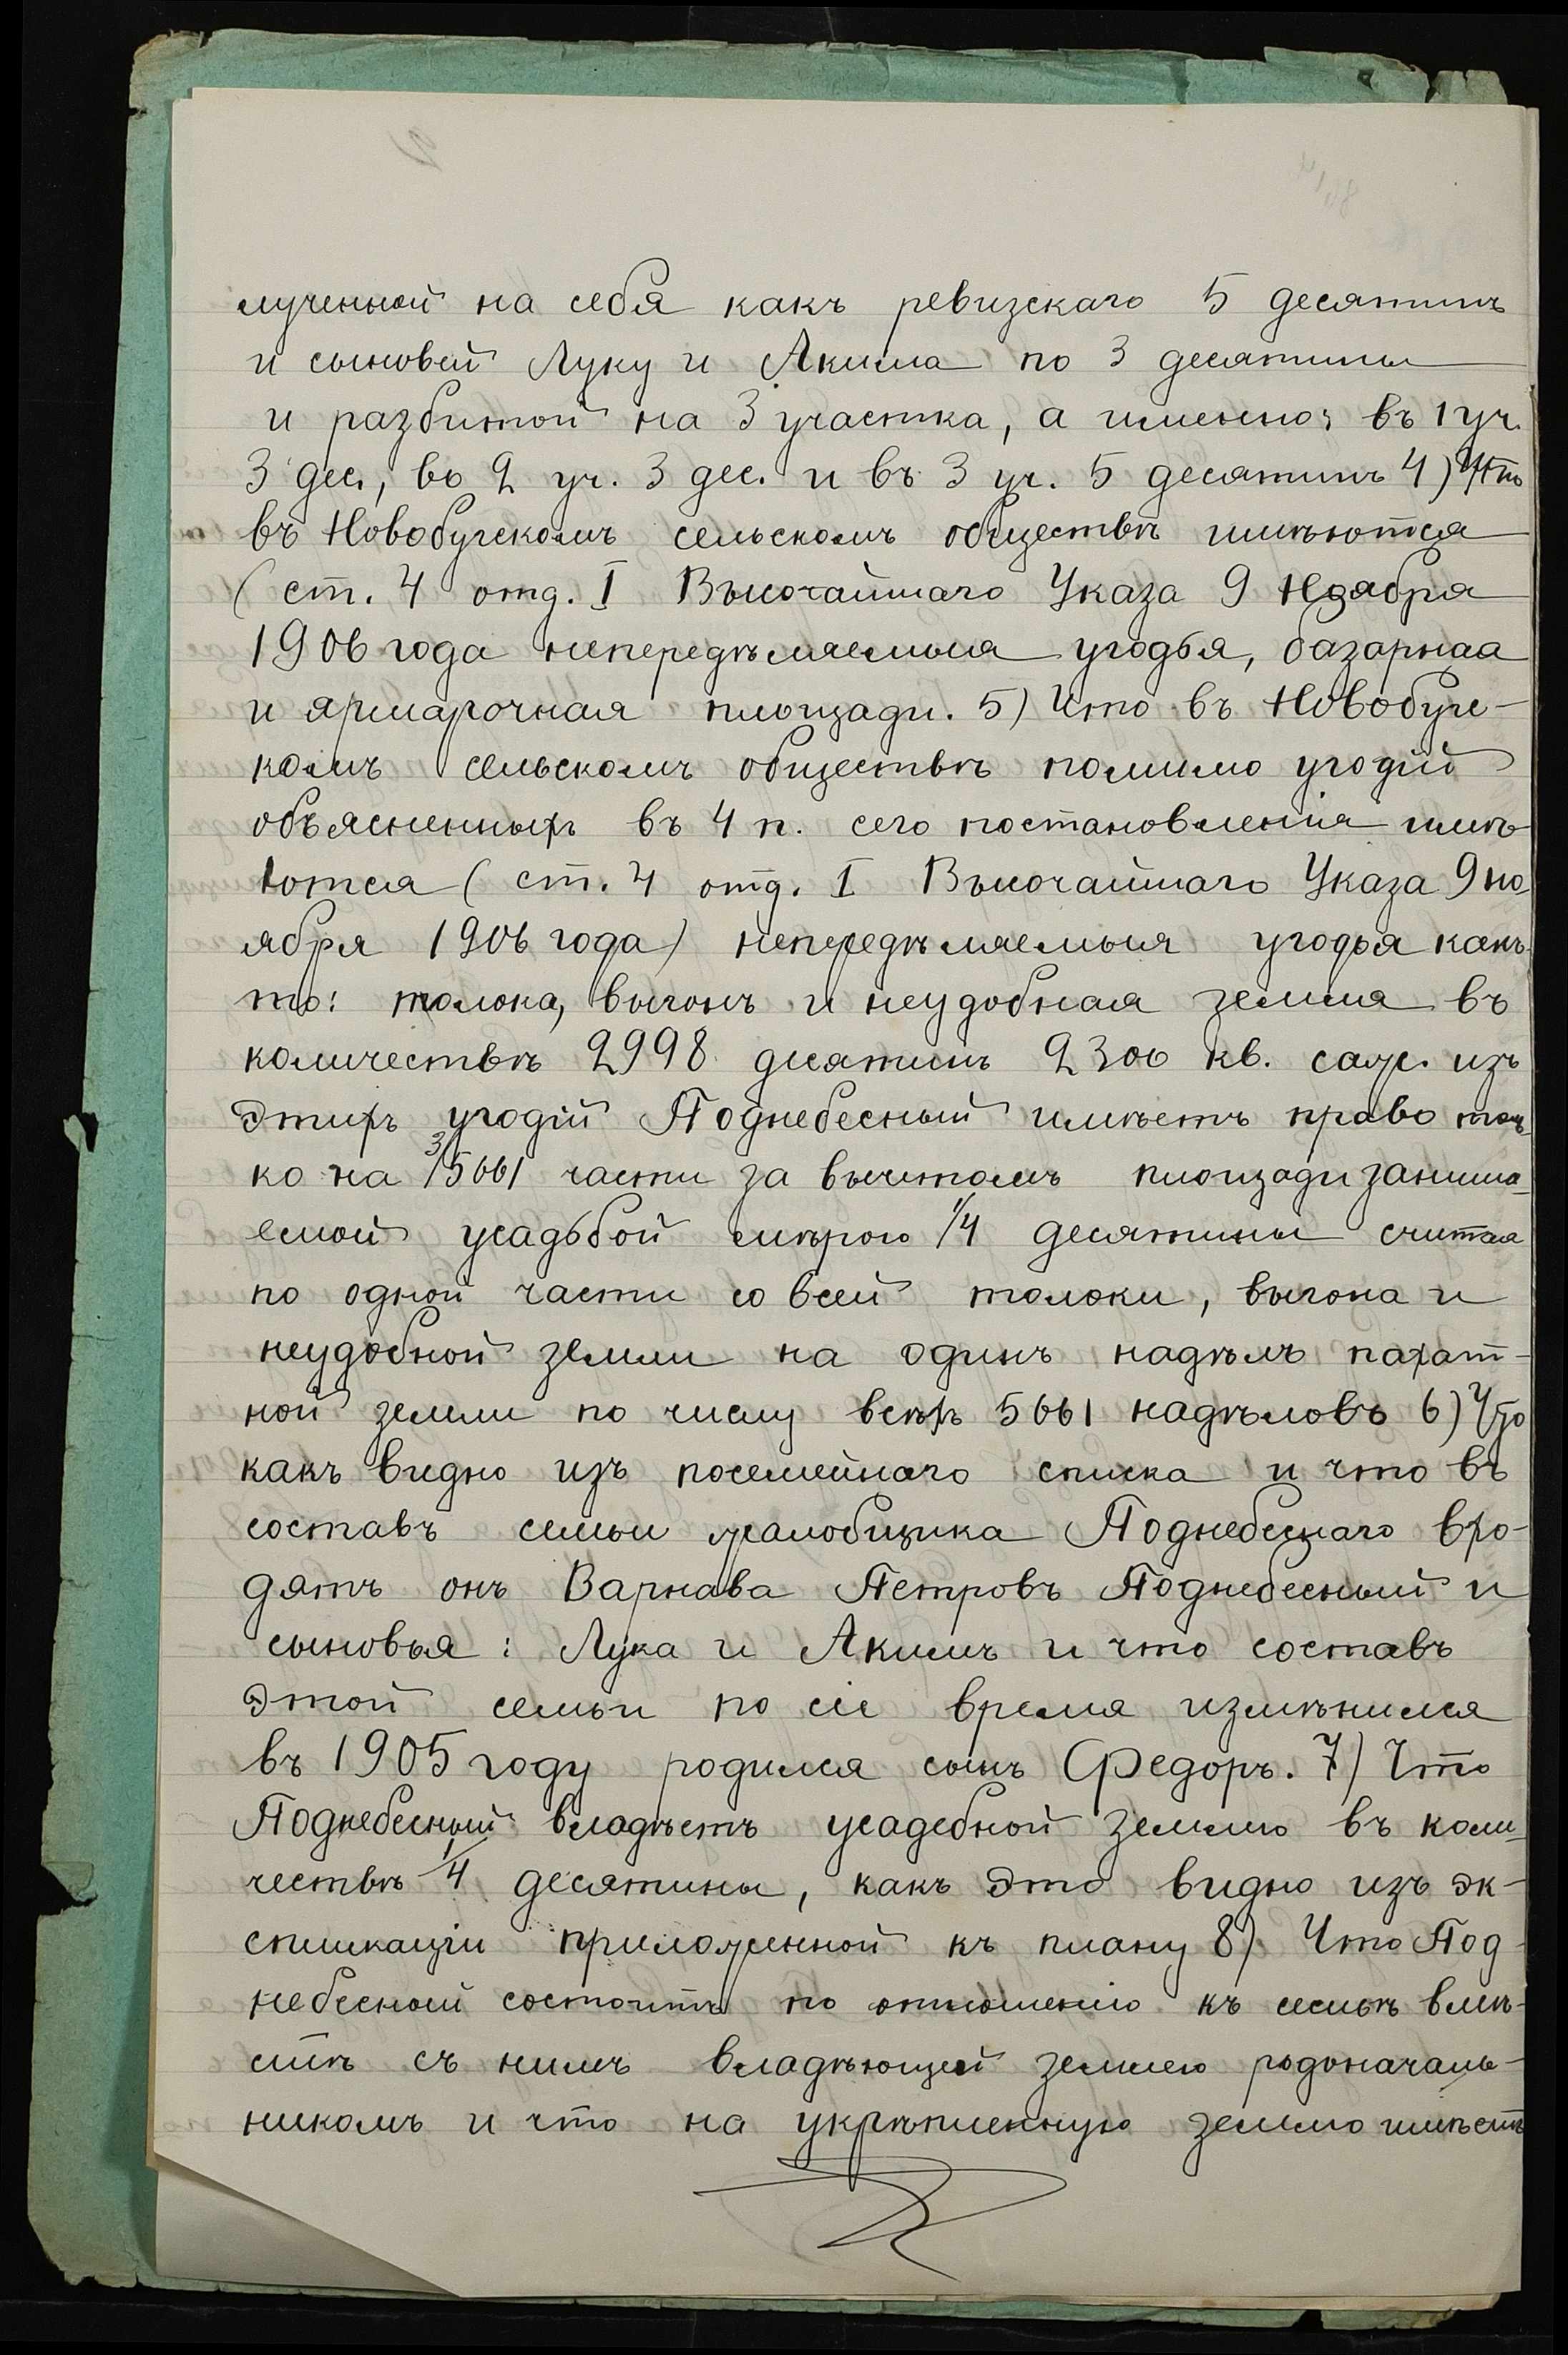 лученной на себя какъ ревизскаго 5 десятинъ
и сыновей Луку и Акима по 3 десятины
и разбитой на 3 участка, а именно: въ 1 уч.
3 дес., во 2 уч. 3 дес. и въ 3 уч. 5 десятинъ 4) Что
въ Новобугскомъ сельскомъ обществѣ имѣются
(ст. 4 отд. I Высочайшаго Указа 9 Ноября
1906 года непередѣляемыя угодья, базарная
и ярмарочная площади. 5) Что въ Новобугс-
комъ сельскомъ обществѣ помимо угодій
объясненныхъ въ 4 п. сего постановленія имѣ-
ются (ст. 4 отд. I Высочайшаго Указа 9 но-
ября 1906 года) непередѣляемыя угодья какъ-
то: толока, выгонъ и неудобная земля въ
количествѣ 2998 десятинъ 2300 кв. саж. изъ
этихъ угодій Поднебесный имѣетъ право толь-
ко на 3/5661 части за вычетомъ площади занима-
емой усадьбой мѣрою 1/4 десятины считая
по одной части со всей толоки, выгона и
неудобной земли на одинъ надѣлъ пахат-
ной земли по числу всѣхъ 5661 надѣловъ 6) Что
какъ видно изъ посемейнаго списка и что въ
составъ семьи жалобщика Поднебеснаго вхо-
дятъ онъ Варнава Петровъ Поднебесный и
сыновья: Лука и Акимъ и что составъ
этой семьи по сіе время измѣнился
въ 1905 году родился сынъ Федоръ. 7) Что
Поднебесный владѣетъ усадебной землею въ коли-
чествѣ 1/4 десятины, какъ это видно изъ эк-
спликаціи приложенной къ плану 8) Что Под-
небесный состоитъ по отношенію къ семьѣ вмѣ-
стѣ съ нимъ владѣющей землею родоначаль-
никомъ и что на укрѣпленную землю имѣетъ